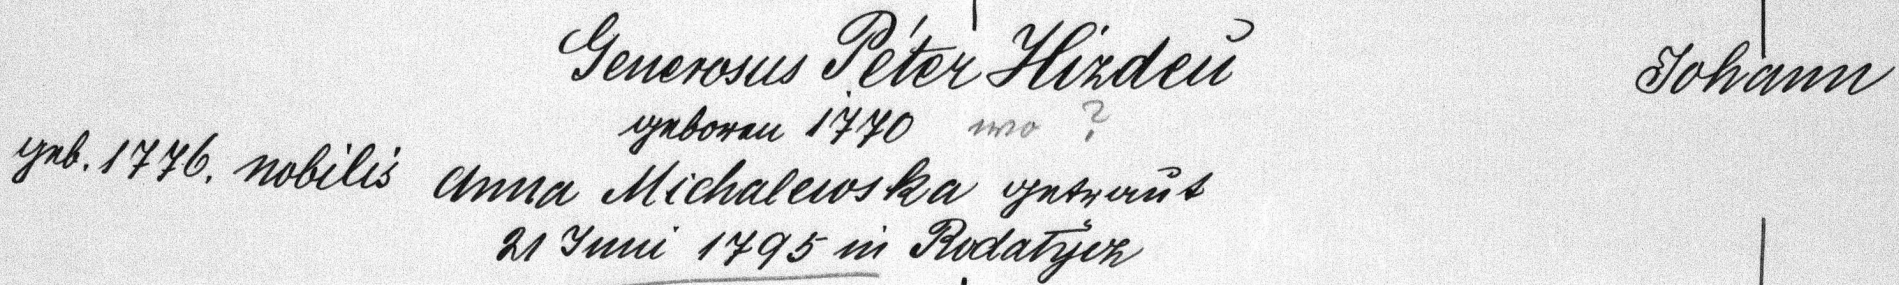 Generosus Péter Hizdeŭ Johann
geboren 1770 wo ?
geb. 1776. nobilis Anna Michalewska getraut
21 Juni 1795 in Rodatycz